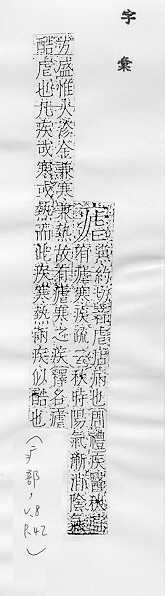 字彙
瘧 魚約切音虐痁病也周禮疾醫秋時
有瘧寒疾疏云秋時陽氣漸消陰氣
方盛惟火沴金兼寒兼熱故有瘧寒之疾釋名瘧
酷虐也凡疾或寒或熱而此疾寒熱兩疾似酷也
(疒部, v.8
P.42)